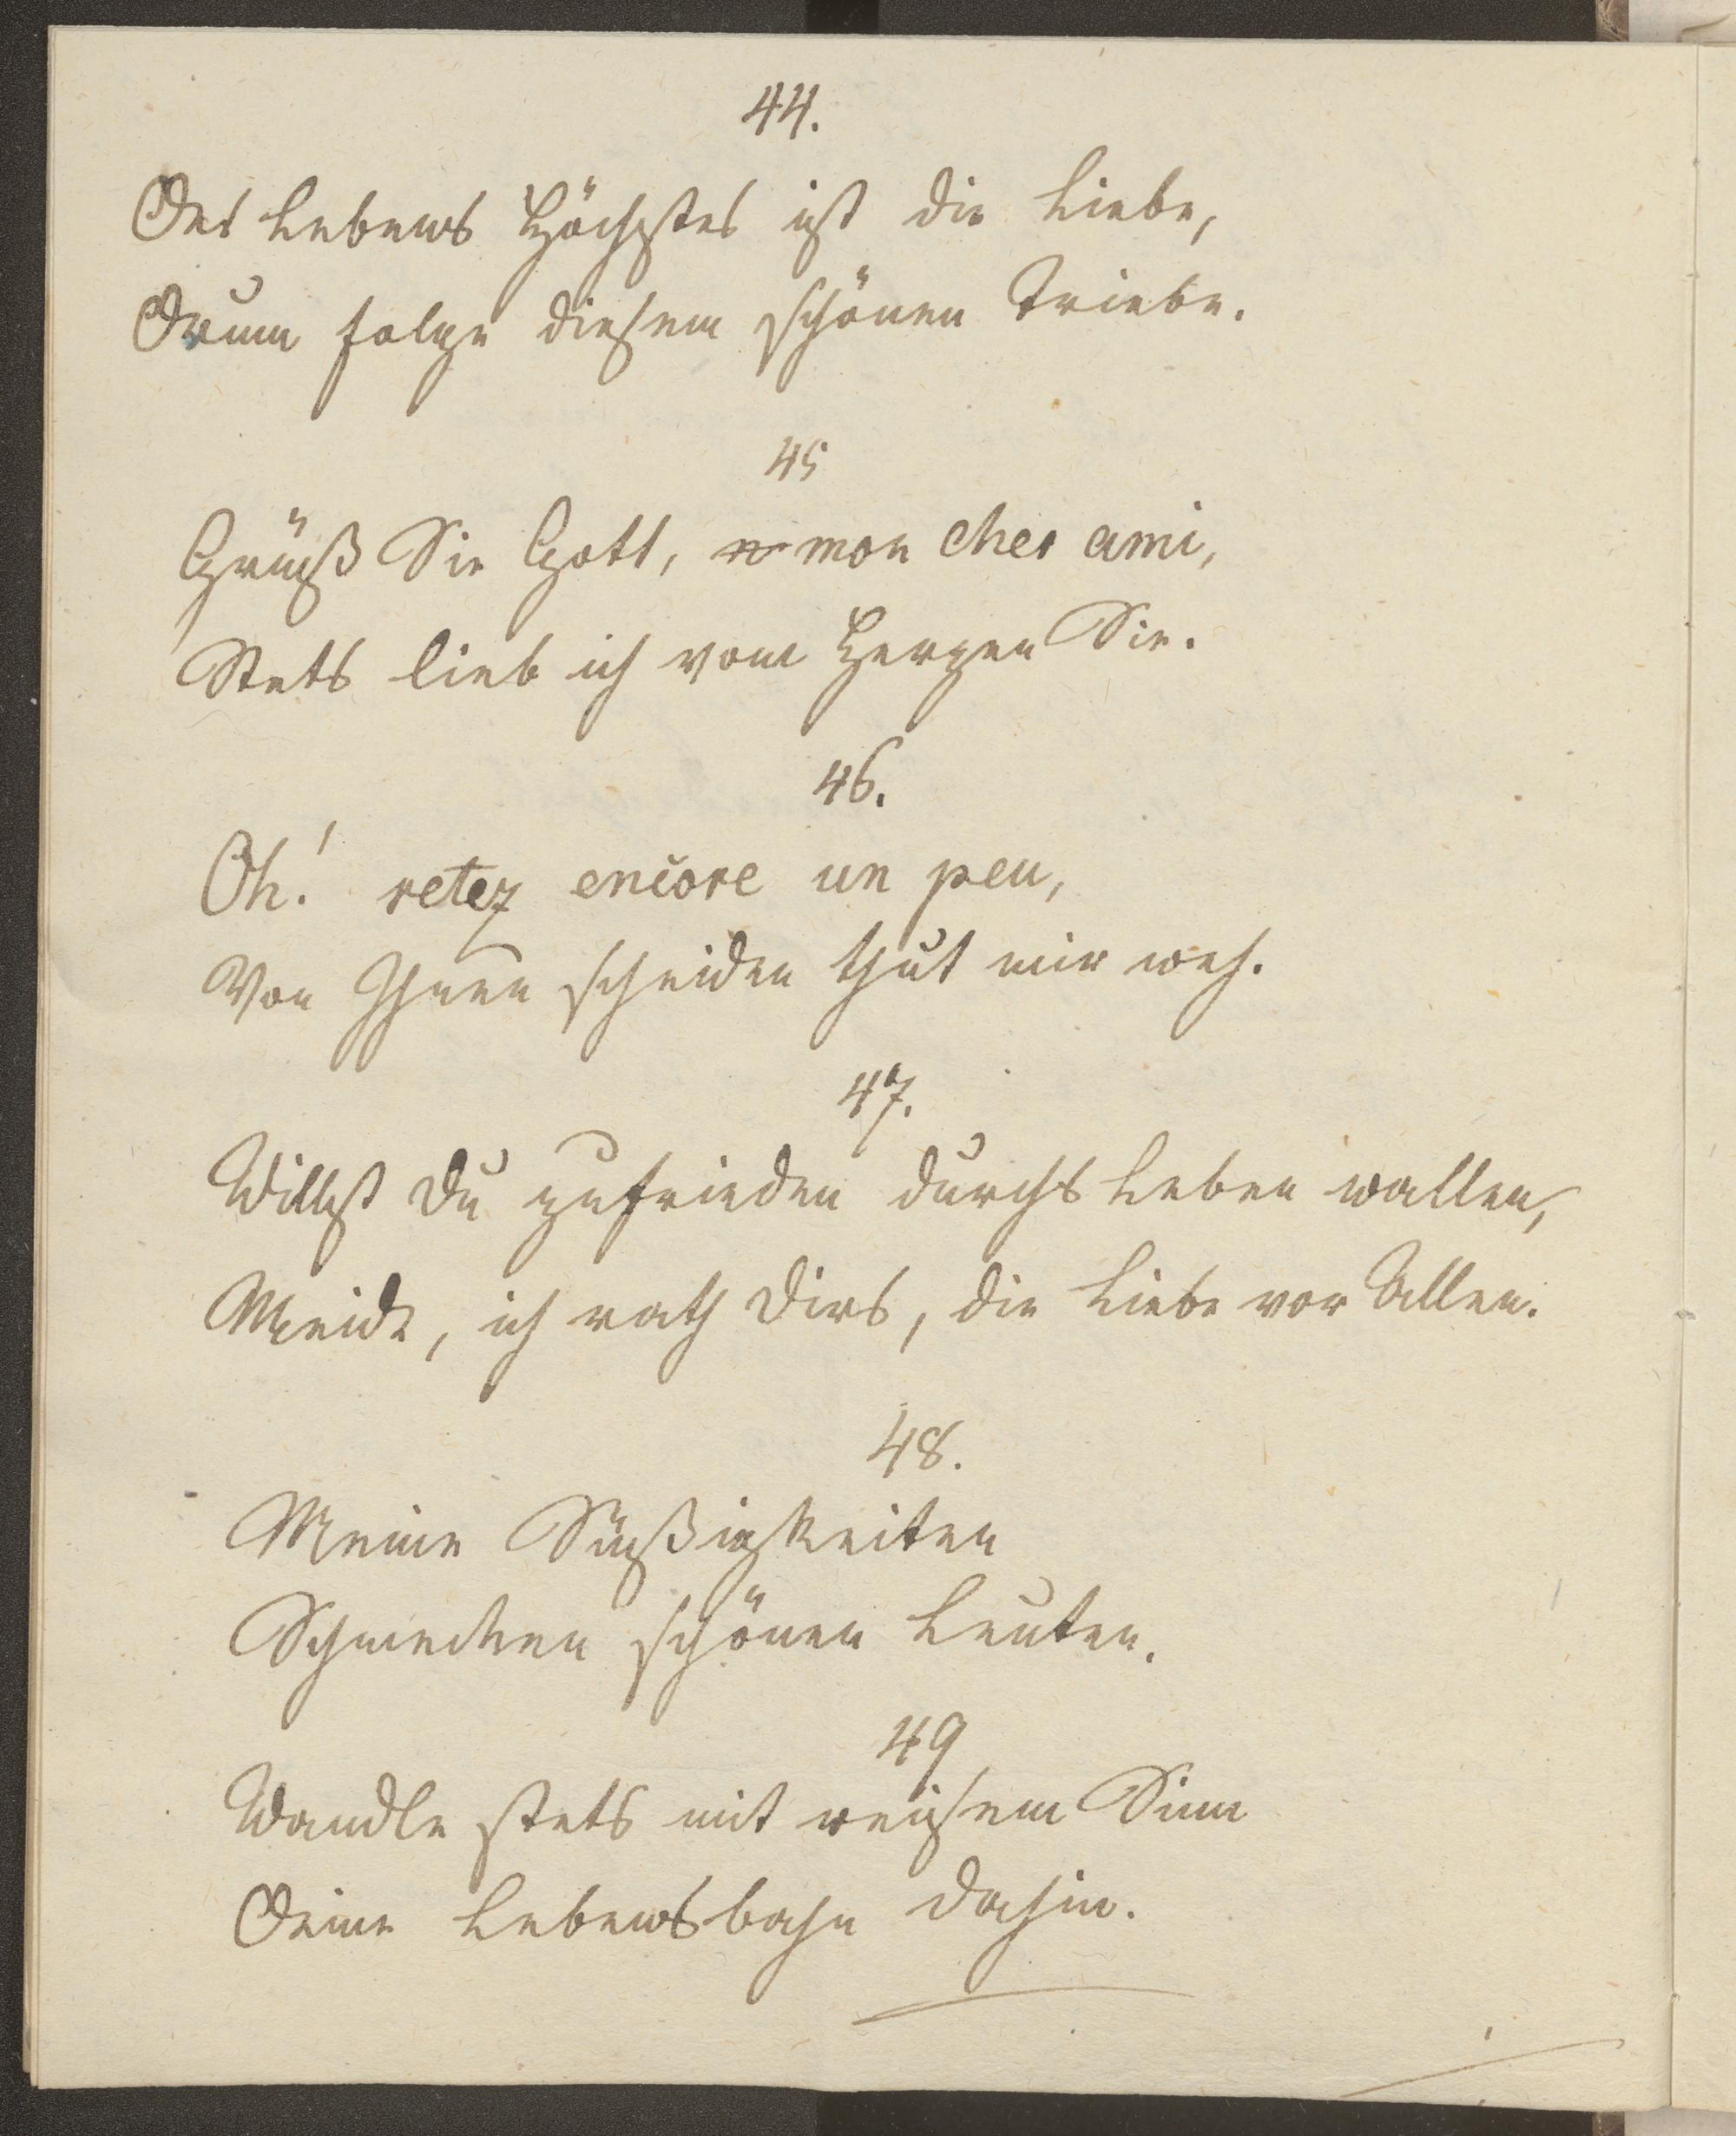 44.
Des Lebens Höchstes ist die Liebe,
Drum folge diesem schönen Triebe.
45
Grüß Sie Gott, mon cher ami,
Stets lieb ich vom Herzen Sie.
46.
Oh! retez encore un peu,
Von Ihnen scheiden thut mir weh.
47.
Willst du zufrieden durchs Leben wallen,
Meide, ich rath dirs, die Liebe vor Allen.
48.
Meine Süßigkeiten
Schmecken schönen Leuten.
49
Wandle stets mit weisem Sinn
Deine Lebensbahn dahin.